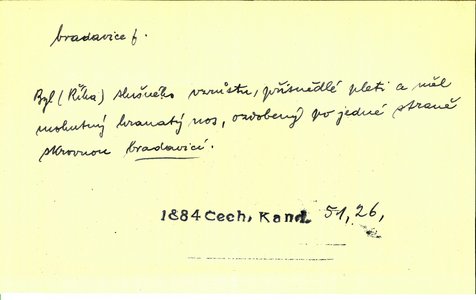 bradavice f.
Byl (Říha) slušného vzrůstu, přisnědlé pleti a měl
mohutný hranatý nos, ozdobený po jedné straně
skrovnou bradavicí.
1884 Čech, Kand. 51, 26,